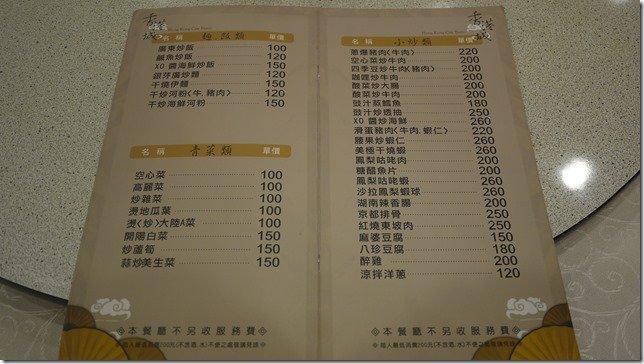 香港城
Hong Kong City Bistro
名稱 麵、飯類 單價
廣東炒飯 100
鹹魚炒飯 120
XO 醬海鮮炒飯 150
銀芽廣炒麵 120
干燒伊麵 150
干炒河粉(牛、豬肉) 120
干炒海鮮河粉 150
名稱 青菜類 單價
空心菜 100
高麗菜 100
炒雜菜 100
燙地瓜葉 100
燙(炒)大陸A菜 100
開陽白菜 150
炒蘆筍 150
蒜炒美生菜 150
◎本餐廳不另收服務費◎
香港城
Hong Kong City Bistro
名稱 小炒類 單價
蔥爆豬肉(牛肉) 220
空心菜炒牛肉 200
四季豆炒牛肉(豬肉) 200
咖哩炒牛肉 200
酸菜炒大腸 200
酸菜炒牛肉 200
豉汁蒸鱈魚 180
豉汁炒透抽 250
XO 醬炒海鮮 260
滑蛋豬肉(牛肉、蝦仁) 220
腰果炒蝦仁 260
美極干燒蝦 260
鳳梨咕咾肉 200
糖醋魚片 200
鳳梨咕咾蝦 260
沙拉鳳梨蝦球 260
湖南辣香腸 200
京都排骨 250
紅燒東坡肉 250
麻婆豆腐 150
八珍豆腐 180
醉雞 200
涼拌洋蔥 120
◎本餐廳不另收服務費◎